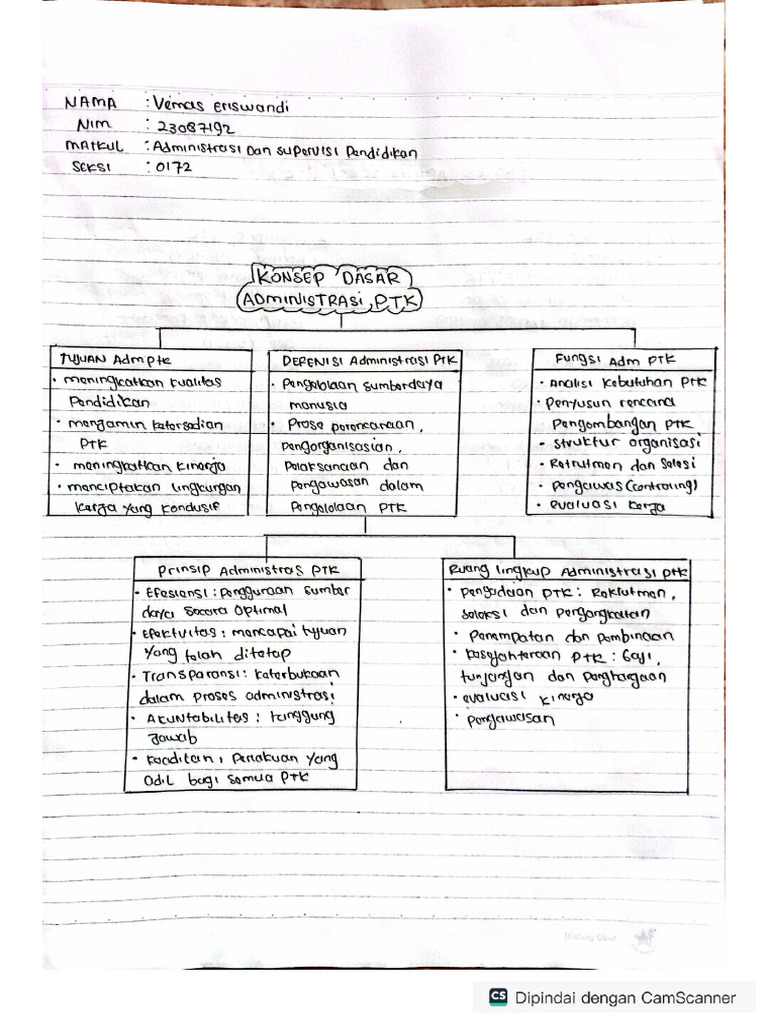 NAMA : Vernas Eriswandi
NIM : 23087192
MATKUL : Administrasi Dan Supervisi Pendidikan
SEKSI : 0172
KONSEP DASAR
ADMINISTRASI PTK
TUJUAN Adm Ptk
• meningkatkan kualitas
Pendidikan
• menjamin ketersedian
PTK
• meningkatkan kinerja
• menciptakan lingkungan
kerja yang kondusif
DEFENISI Administrasi PtK
• Pengelolaan sumberdaya
manusia
• Prose perencanaan,
pengorganisasian,
Pelaksanaan dan
Pengawasan dalam
Pengelolaan PTK
Fungsi Adm PTK
• Analisi Kebutuhan PtK
• Penyusun rencana
Pengembangan PTK
• Struktur organisasi
• Rekrutmen dan Selesi
• Pengawas (controling)
• evaluasi kerja
Prinsip Administras PTK
• Efesiensi : penggunaan sumber
daya secara optimal
• Efektvitas : mencapai tujuan
yang telah ditetap
• Transparansi : keterbukaan
dalam proses administrasi
• Akuntabilitas : tanggung
Jawab
• keaditan : Perlakuan yang
adil bagi semua PTK
Ruang lingkup Administrasi ptk
• pengadaan PTK : Rekrutmen,
seleksi dan pengangkatan
• Penempatan dan Pembinaan
• Kesejahteraan PTK : Gaji,
tunjangan dan penghargaan
• evaluasi kinerja
• pengawasan
CS Dipindai dengan CamScanner